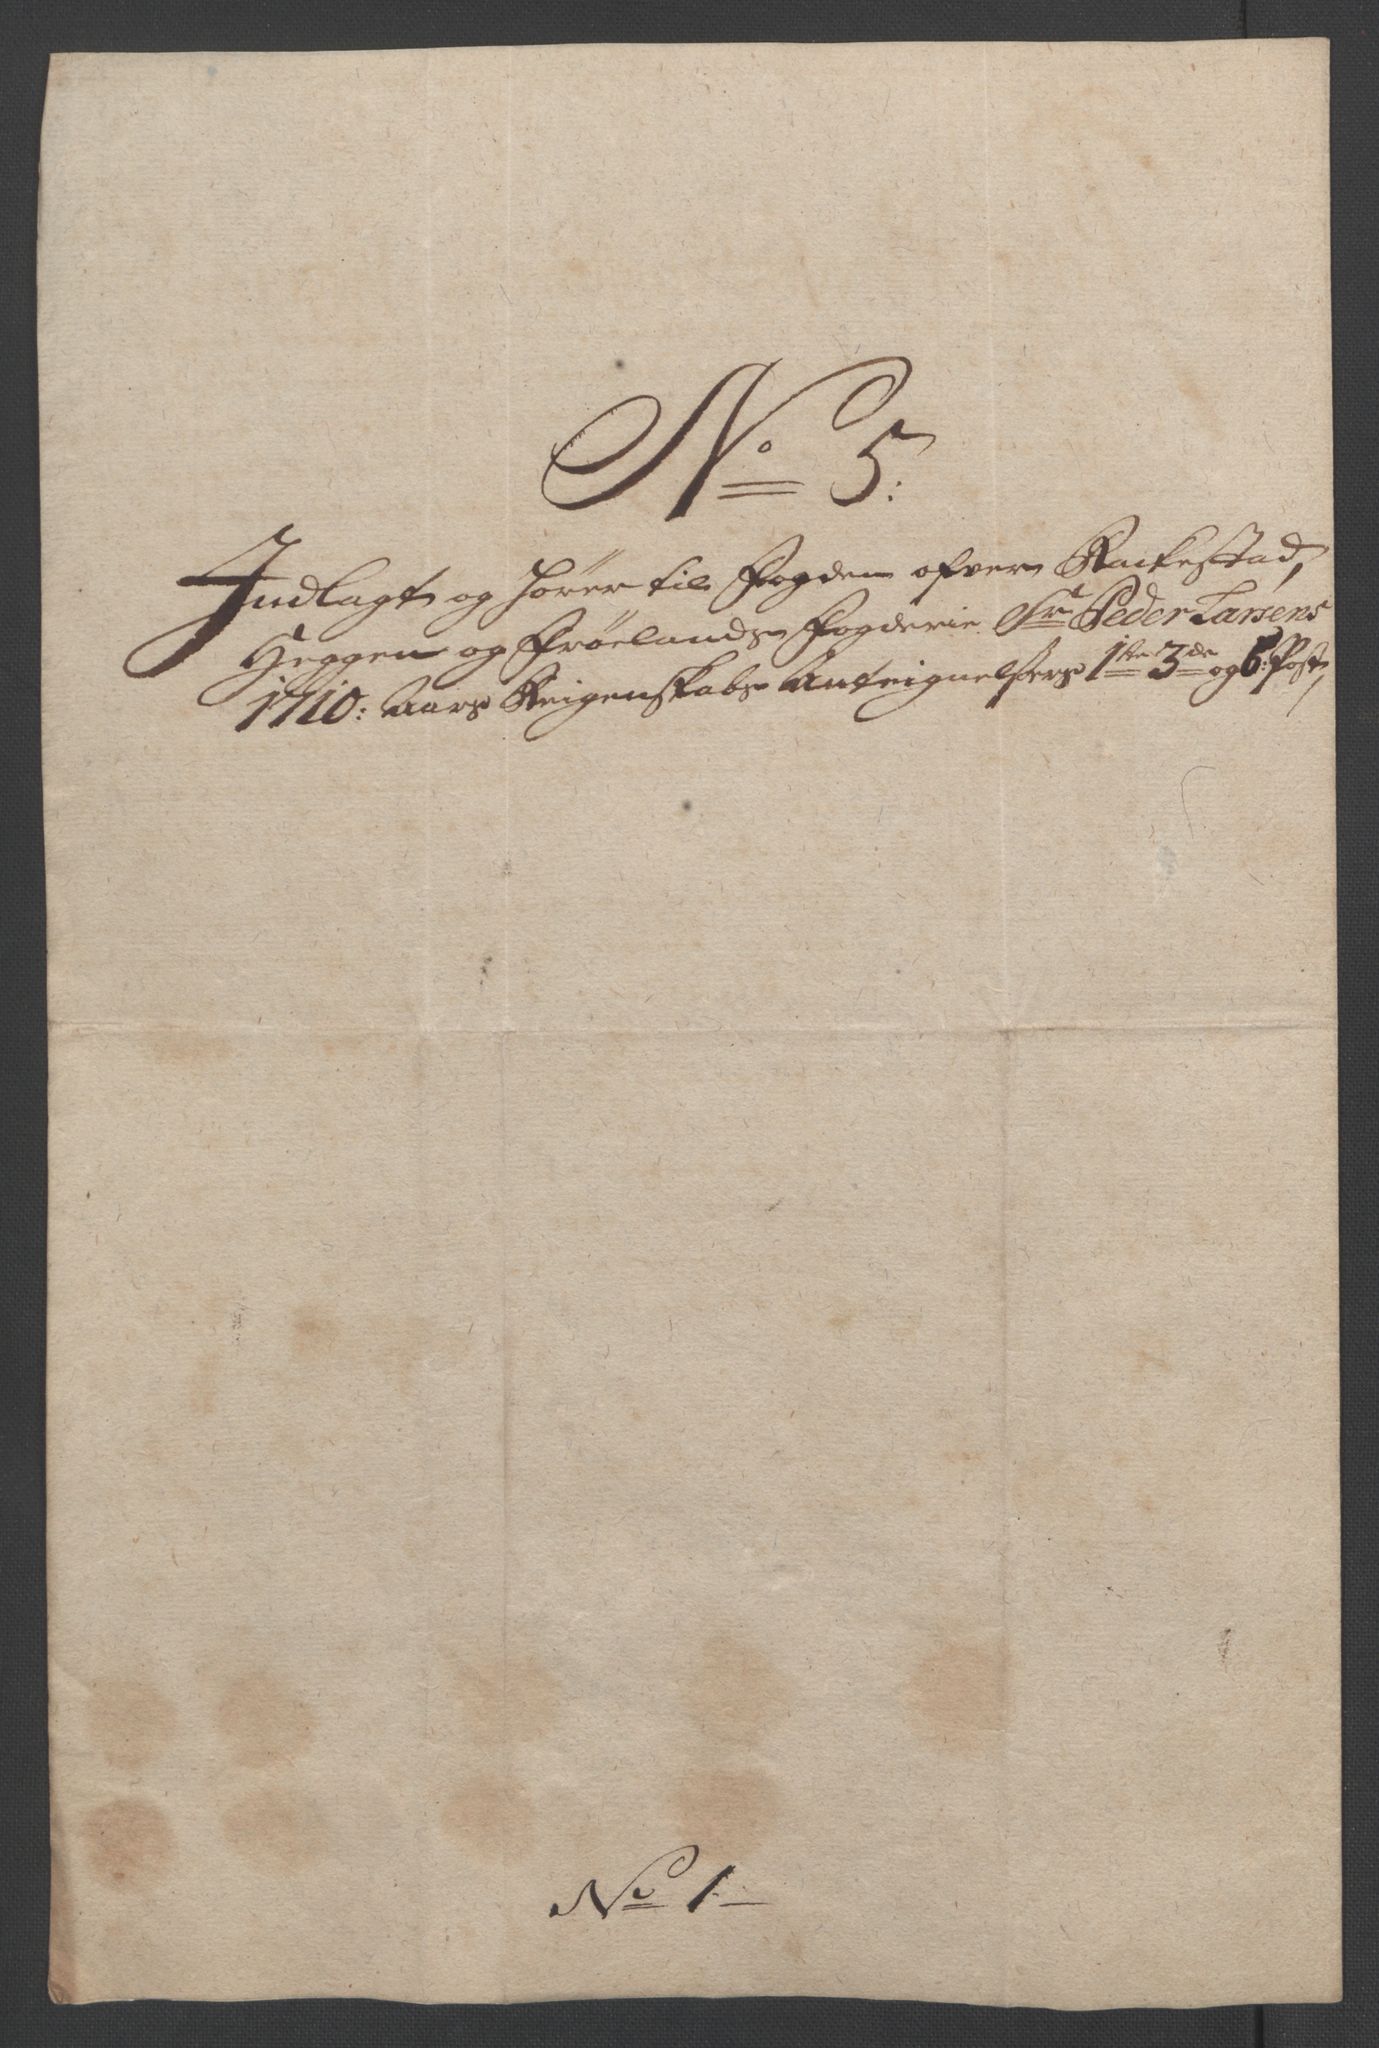 No 5:
Indlagt og hører til Fogden ofver Rackestad,
Heggen og Frølands Fogderie Sr Peder Larsens
1710: Aars Reigenskabs Anteignelsers 1te 3de og 6: Post,
No 1